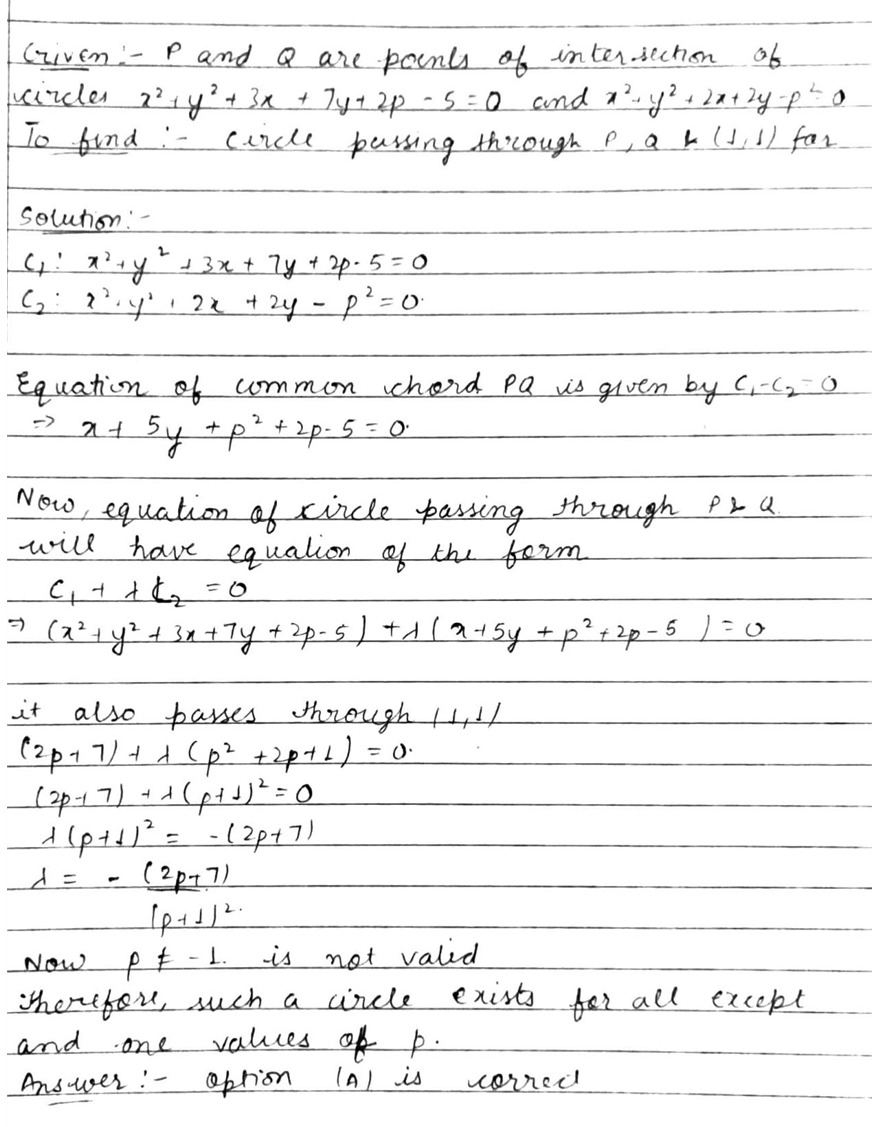 Given :- P and Q are points of intersection of
circles x² + y² + 3x + 7y + 2p - 5 = 0 and x² + y² + 2x + 2y - p² = 0
To find :- circle passing through P, Q & (1,1) for
Solution :-
C₁ : x² + y² + 3x + 7y + 2p - 5 = 0
C₂ : x² + y² + 2x + 2y - p² = 0.
Equation of common chord PQ is given by C₁ - C₂ = 0
⇒ x + 5y + p² + 2p - 5 = 0.
Now, equation of circle passing through P & Q
will have equation of the form
C₁ + λ L₂ = 0
⇒ (x² + y² + 3x + 7y + 2p - 5) + λ (x + 5y + p² + 2p - 5) = 0
it also passes through (1,1)
(2p + 7) + λ (p² + 2p + 1) = 0.
(2p + 7) + λ (p + 1)² = 0
λ (p + 1)² = - (2p + 7)
λ = - (2p + 7)
(p + 1)².
Now p ≠ -1. is not valid
Therefore, such a circle exists for all except
and one values of p.
Answer :- option (A) is correct